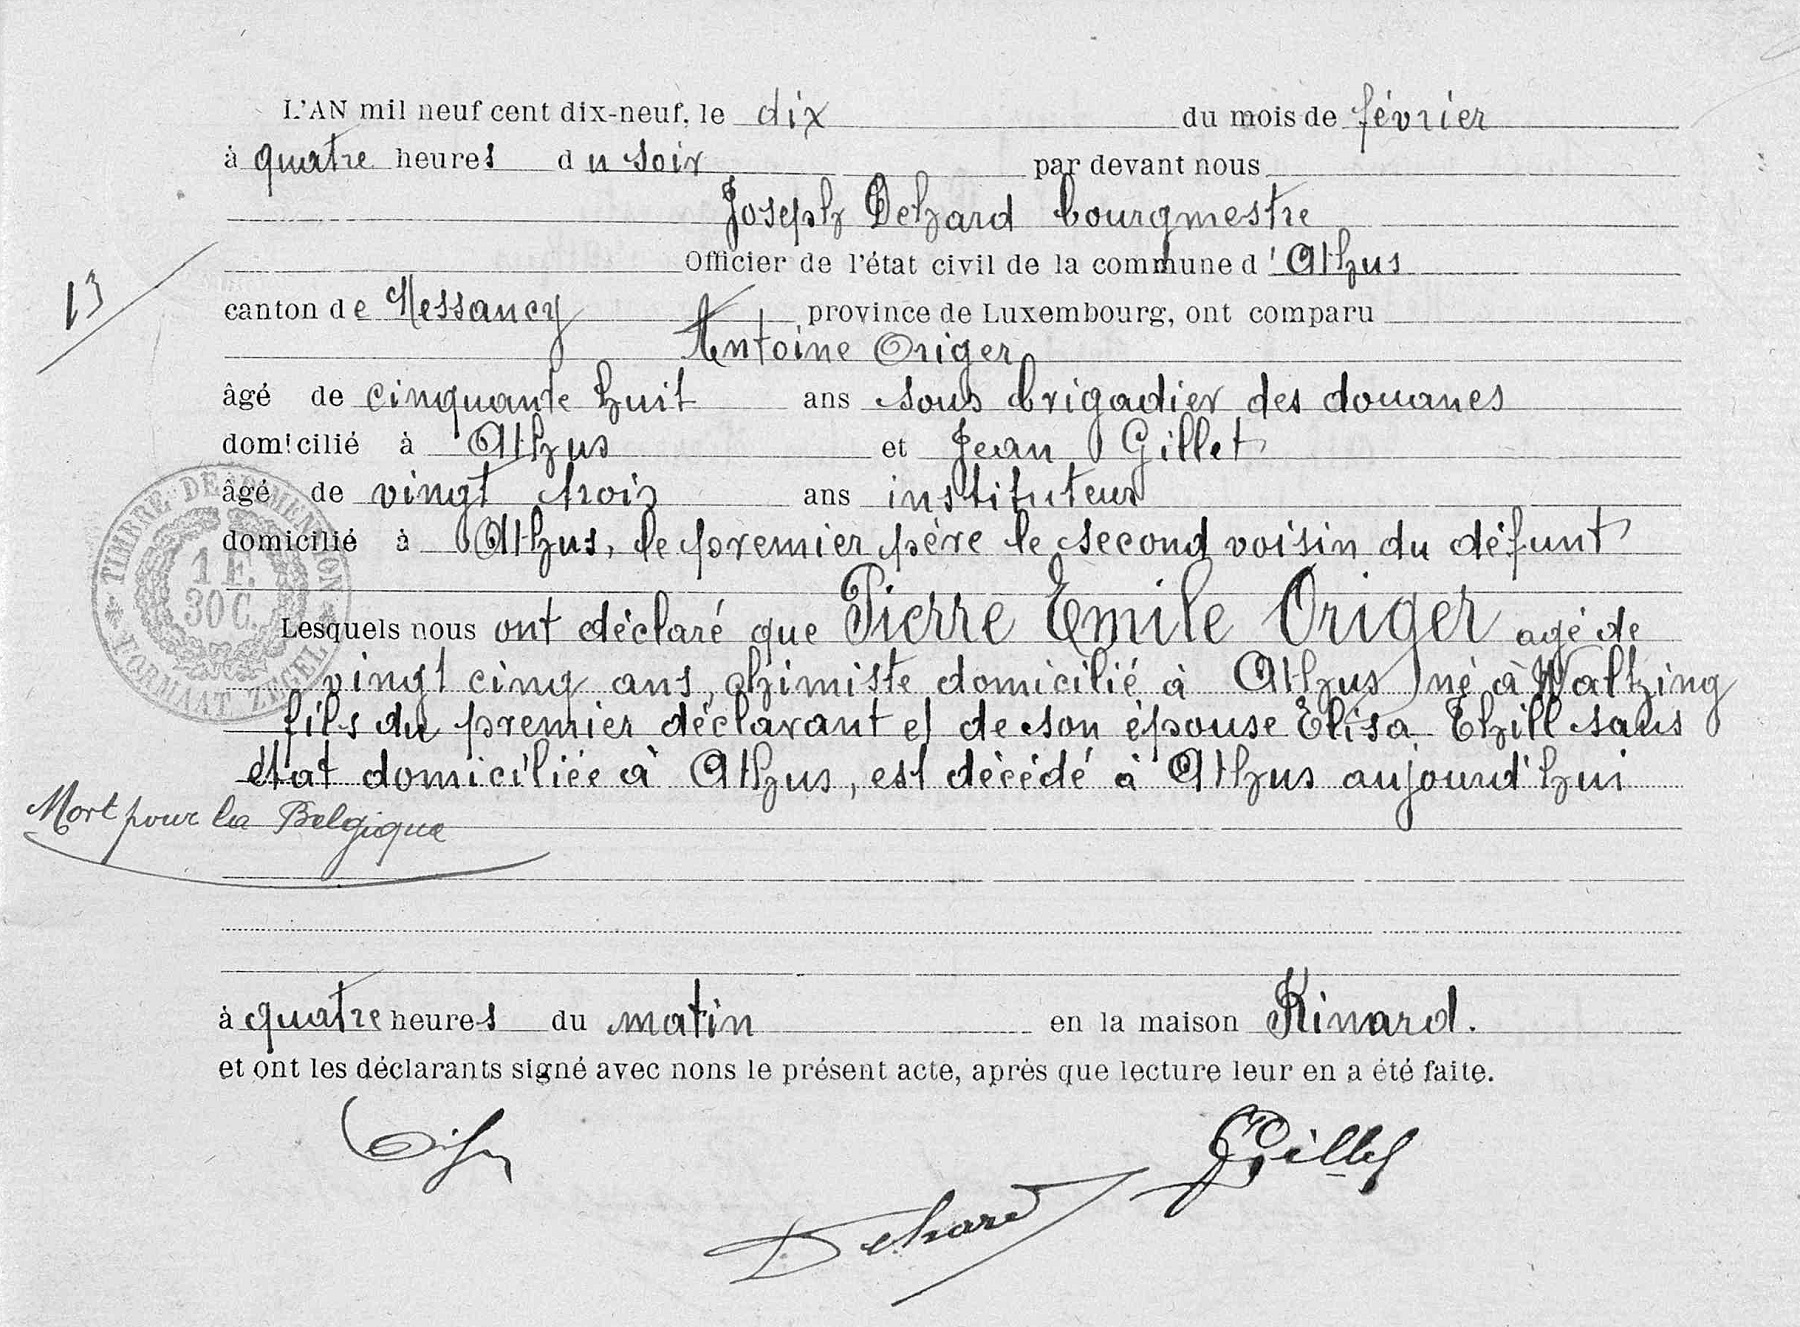 L'AN mil neuf cent dix-neuf, le dix du mois de février
à quatre heures du soir par devant nous
Joseph Dehard bourgmestre
Officier de l'état civil de la commune d'Athus
13
canton de Messancy province de Luxembourg, ont comparu
Antoine Origer
âgé de cinquante huit ans sous brigadier des douanes
domicilié à Athus et Jean Gillet
âgé de vingt trois ans instituteur
domicilié à Athus, le premier père le second voisin du défunt
TIMBRE DE DIMENSION
1 F.
30 C.
FORMAAT ZEGEL
Lesquels nous ont déclaré que Pierre Emile Origer agé de
vingt cinq ans, chimiste domicilié à Athus né à Waltzing
fils du premier déclarant et de son épouse Elisa Thill sans
état domiciliée à Athus, est décédé à Athus aujourd'hui
Mort pour la Belgique
à quatre heures du matin en la maison Kinard.
et ont les déclarants signé avec nons le présent acte, après que lecture leur en a été faite.
Gillet
Dehard